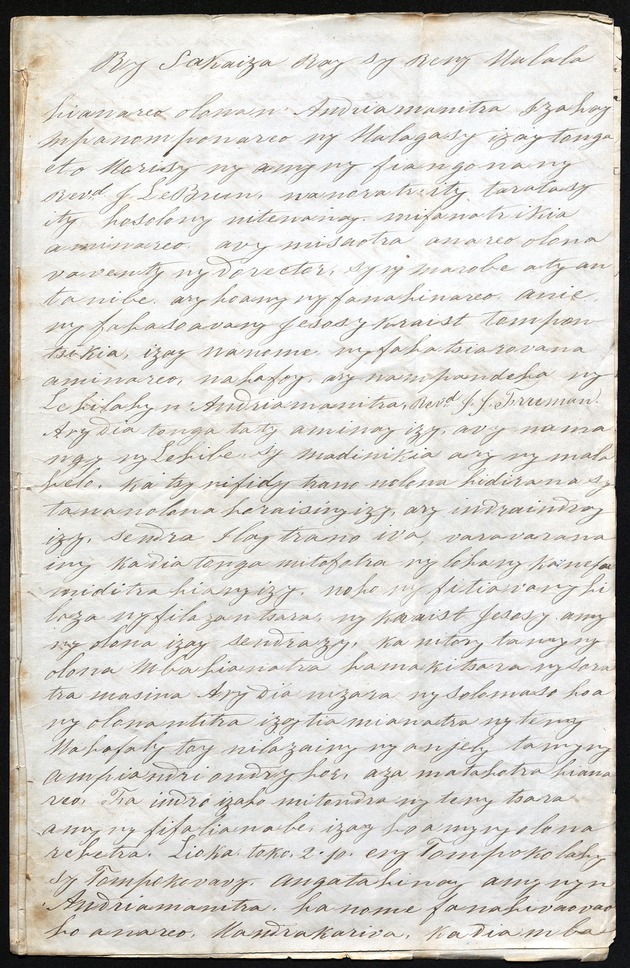 Ry Sakaiza Ray sy Reny Malala
hianareo olonan' Andriamanitra Izahay
mpanomponareo ny Malagasy izay tonga
eto Morisy ny amy ny fiangonany
Revd J LeBrun, nanoratr ity taratasy
ity hosolony nitenanay mifanatrikia
aminareo. avy misaotra anareo olona
vaventy ny Dorector, sy ny marobe aty an
tanibe, ary hoamy ny fanahinareo anie
ny fahasoavany Jesosy Kraist tompon
tsikia, izay nanome ny fahatsiarovana
aminareo, nahafoy, ary nampandeha ny
Lehilahy n' Andriamanitra, Revd J. J. Freeman.
Ary dia tonga taty aminay izy, avy nama
ngy ny Lehibe, sy madinikia ary ny mala
helo, ka tsy nifidy trano nolona hidirana sy
tananolona horaisiny izy, ary indraindray
izy, sendra Ilay trano iva, varavarana
iny ka dia tonga mitofotra ny lohany ka nefa
miditra hiany izy, noho ny fitiavany hi
laza ny filazantsara, ny Kraist Jesosy amy
ny olona izay sendra azy, ka nitory tamy ny
olona mba hianatra hamaki tsara ny sora
tra masina Ary dia nizara ny solomaso hoa
ny olona antitra izay tia mianatra ny teny
Mahafaly toy nilazainy ny anjely tamy ny
ampiandri ondry hoe, aza matahotra hiana
reo, Fa indro izaho mitondra ny teny tsara
amy ny fifalianabe, izay ho amy ny olona
rehetra. Lioka toko. 2. 10. eny Tompokolahy
sy Tompokovavy angatahinay amy ny n
Andriamanitra. hanome fanahivaovao
ho anareo, Mandrakariva, ka dia mba